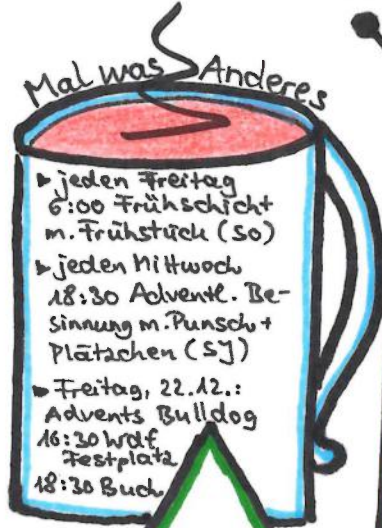 Mal was Anderes
▸ jeden Freitag
6:00 Frühschicht
m. Frühstück (SO)
▸ jeden Mittwoch
18:30 Adventl. Be-
sinnung m. Punsch +
Plätzchen (SJ)
▸ Freitag, 22.12.:
Advents Bulldog
16:30 Wdf
Festplatz
18:30 Buch